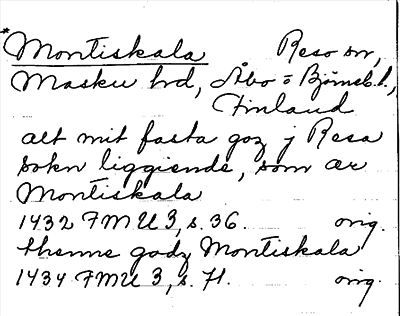 *Montiskala Reso sn,
Masku hd, Åbo o Björneb. l.,
Finland
alt mit fasta goz j Resa
sokn liggiende, som är
Montiskala
1432 FMU 3, s. 36. orig.
thenne godz Montiskala
1434 FMU 3, s. 71. orig.